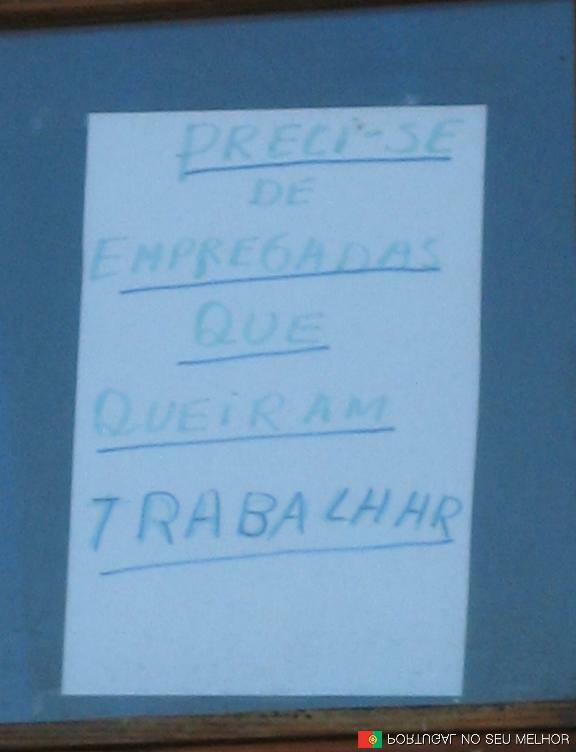 PRECI-SE
DE
EMPREGADAS
QUE
QUEIRAM
TRABALHAR
PORTUGAL NO SEU MELHOR